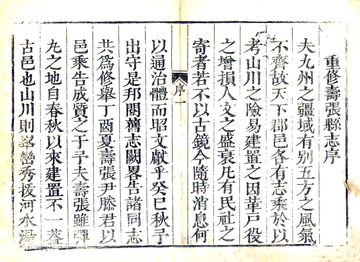 重修壽張縣志序
夫九州之疆域有别五方之風氣
不齊故天下郡邑各有志乘於以
考山川之險易建置之因革戸役
之增損人文之盛衰凡有民社之
寄者若不以古鏡今隨時消息何
序一
以適治體而昭文獻乎癸巳秋予
出守是邦閱舊志闕畧告諸同志
共為修舉丁酉夏壽張尹滕君以
邑乘告成質之于予夫壽張雖彈
丸之地自春秋以來建置不一蓋
古邑也山川則峯巒秀拔河水